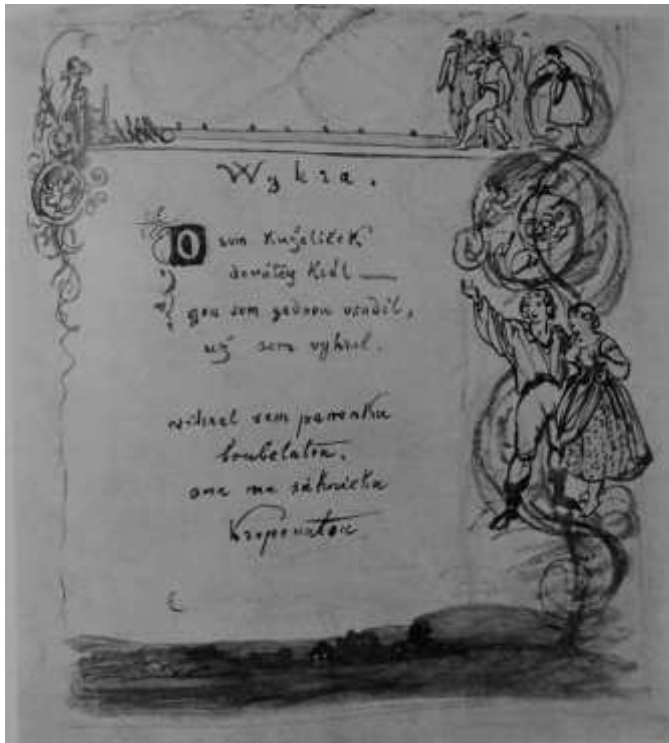 Wykra.
Osum kuželiček
devátey král —
gou sem gednou vsadil,
už sem vyhrál.
wihral sem panenku
boubelatou,
ona má sukničku
kropenatou